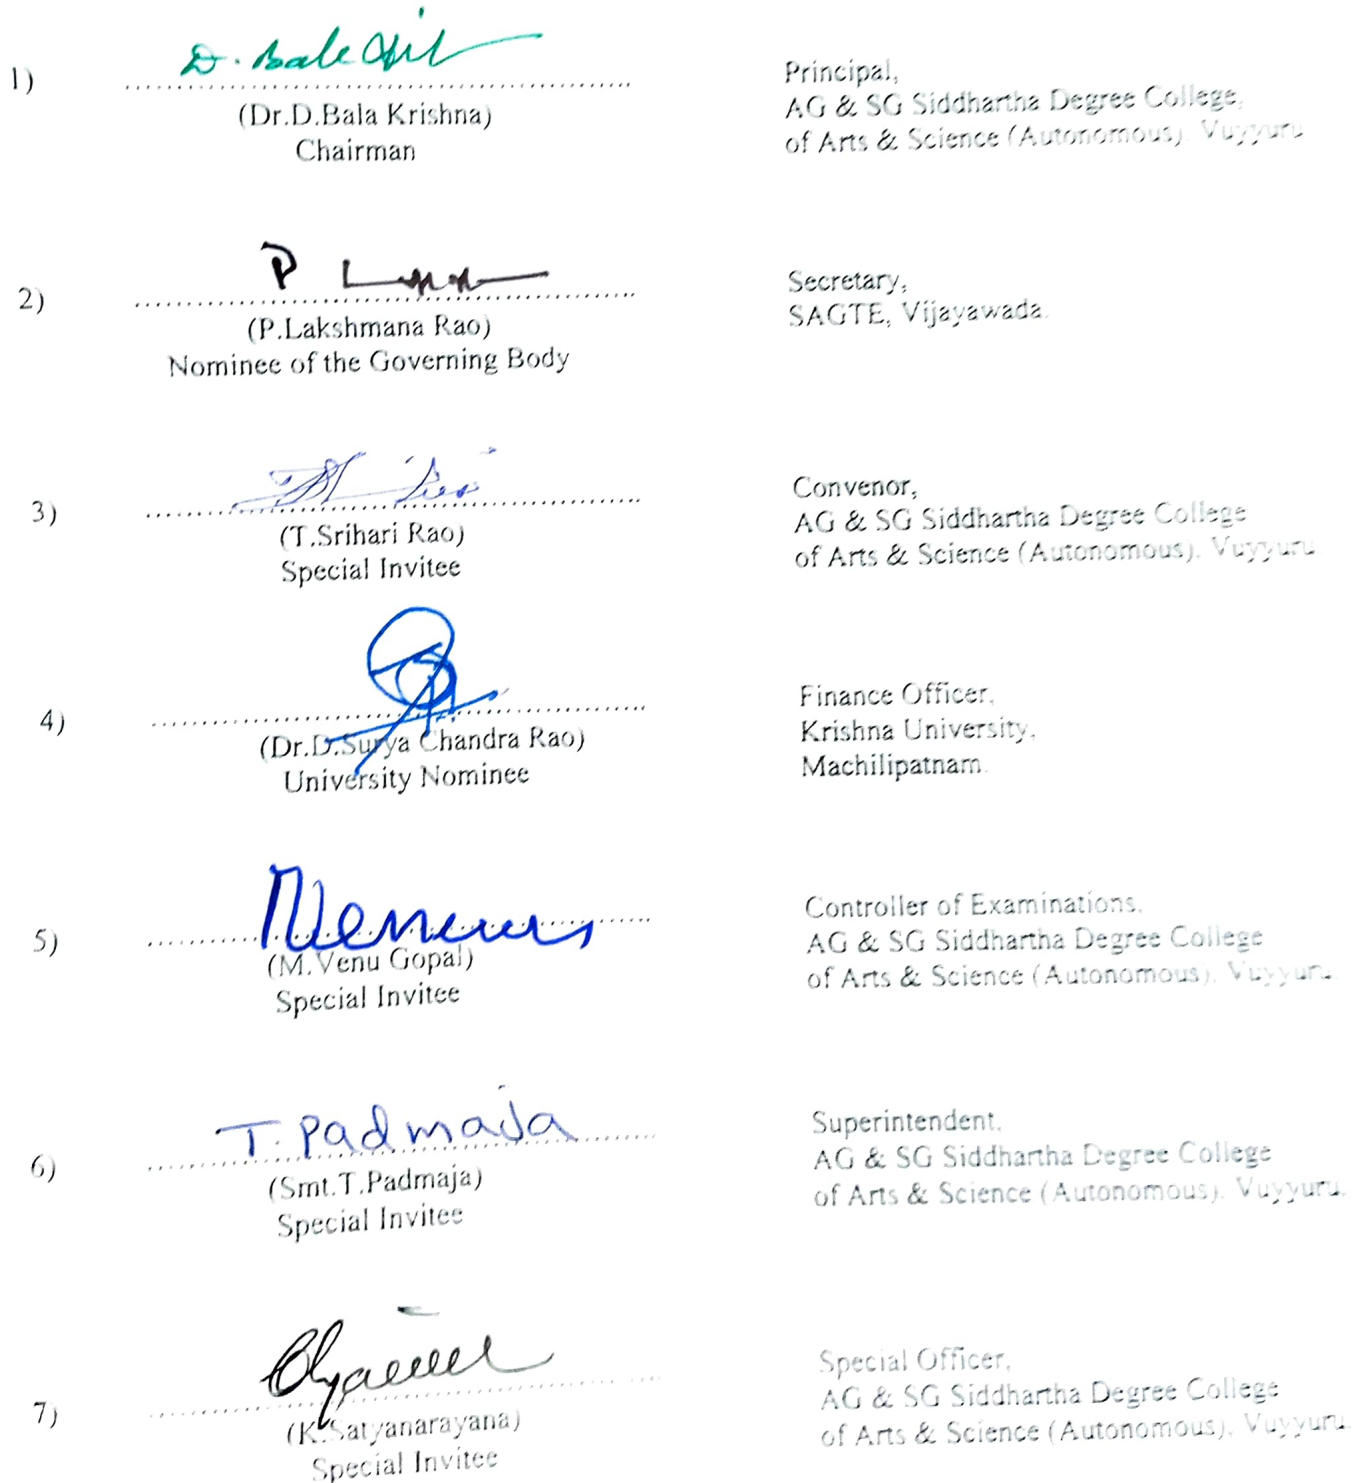 D. Bala
1)
(Dr.D.Bala Krishna)
Chairman
Principal,
AG & SG Siddhartha Degree College,
of Arts & Science (Autonomous), Vuyyuru
P
2)
(P.Lakshmana Rao)
Nominee of the Governing Body
Secretary,
SAGTE, Vijayawada.
3)
(T.Srihari Rao)
Special Invitee
Convenor,
AG & SG Siddhartha Degree College
of Arts & Science (Autonomous), Vuyyuru
4)
(Dr.D.Surya Chandra Rao)
University Nominee
Finance Officer,
Krishna University,
Machilipatnam.
5)
(M.Venu Gopal)
Special Invitee
Controller of Examinations,
AG & SG Siddhartha Degree College
of Arts & Science (Autonomous), Vuyyuru.
T. Padmaja
6)
(Smt.T.Padmaja)
Special Invitee
Superintendent,
AG & SG Siddhartha Degree College
of Arts & Science (Autonomous), Vuyyuru.
7)
(K.Satyanarayana)
Special Invitee
Special Officer,
AG & SG Siddhartha Degree College
of Arts & Science (Autonomous), Vuyyuru.